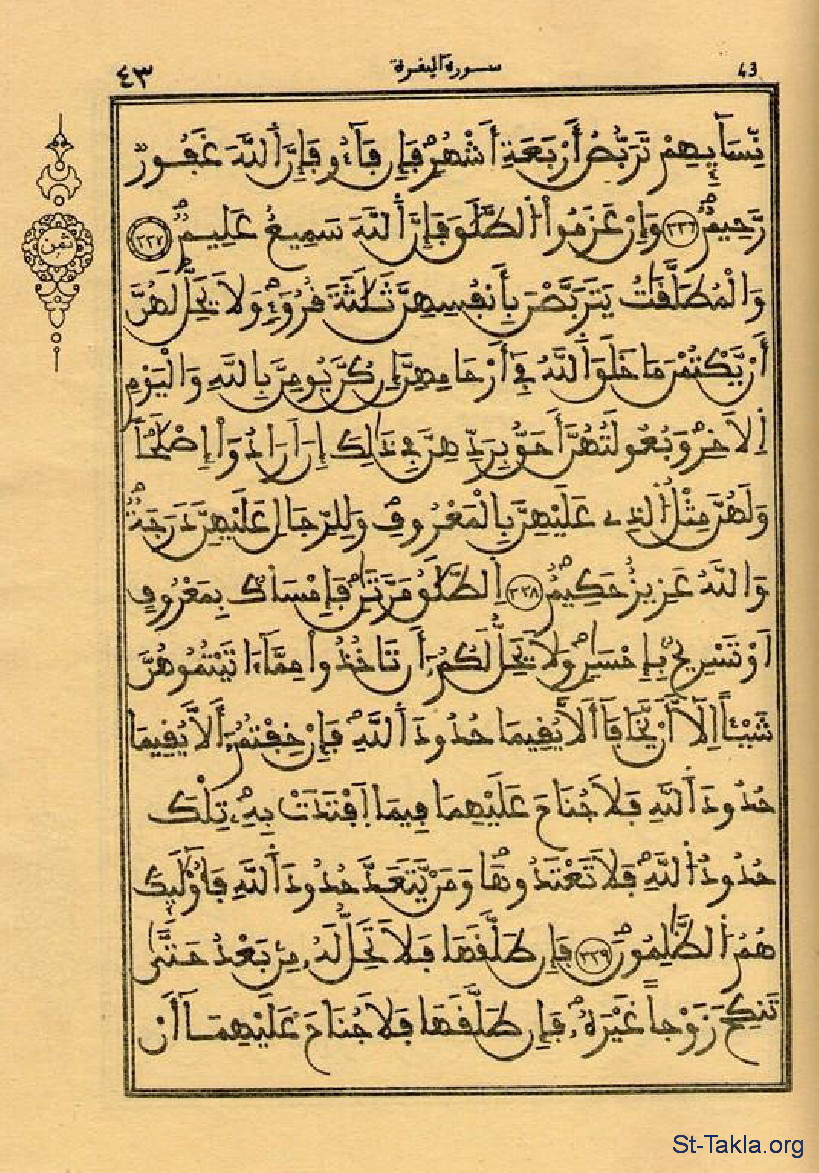 43 سورة البقرة ٤٣
نِّسَآئِهِمْ تَرَبُّصُ أَرْبَعَةِ أَشْهُرٍ فَإِن فَآءُو فَإِنَّ اَللَّهَ غَفُورٌ
رَّحِيمٌ ٢٢٦ وَإِنْ عَزَمُواْ اُلطَّلَٰقَ فَإِنَّ اَللَّهَ سَمِيعٌ عَلِيمٌ ٢٢٧
وَالْمُطَلَّقَٰتُ يَتَرَبَّصْنَ بِأَنفُسِهِنَّ ثَلَٰثَةَ قُرُوٓءٍ وَلاَ يَحِلُّ لَهُنَّ
أَنْ يَّكْتُمْنَ مَا خَلَقَ اَللَّهُ فِےٓ أَرْحَامِهِنَّ إِن كُنَّ يُومِنَّ بِاللَّهِ وَالْيَوْمِ
اِلاَخِرِ وَبُعُولَتُهُنَّ أَحَقُّ بِرَدِّهِنَّ فِے ذَٰلِكَ إِنَ اَرَادُوٓاْ إِصْلَٰحاً
وَلَهُنَّ مِثْلُ اُلذِے عَلَيْهِنَّ بِالْمَعْرُوفِ وَلِلرِّجَالِ عَلَيْهِنَّ دَرَجَةٌ
وَاللَّهُ عَزِيزٌ حَكِيمٌ ٢٢٨ اِلطَّلَٰقُ مَرَّتَٰنِ فَإِمْسَاكٌ بِمَعْرُوفٍ
اَوْ تَسْرِيحٌ بِإِحْسَٰنٍ وَلاَ يَحِلُّ لَكُمُۥٓ أَن تَاخُذُواْ مِمَّآ ءَاتَيْتُمُوهُنَّ
شَيْـًٔا اِلَّآ أَنْ يَّخَافَآ أَلاَّ يُقِيمَا حُدُودَ اَللَّهِ فَإِنْ خِفْتُمُۥٓ أَلاَّ يُقِيمَا
حُدُودَ اَللَّهِ فَلاَ جُنَاحَ عَلَيْهِمَا فِيمَا اَفْتَدَتْ بِهِۦ تِلْكَ
حُدُودُ اُللَّهِ فَلاَ تَعْتَدُوهَا وَمَنْ يَّتَعَدَّ حُدُودَ اَللَّهِ فَأُوْلَٰٓئِكَ
هُمُ اُلظَّٰلِمُونَ ٢٢٩ فَإِن طَلَّقَهَا فَلاَ تَحِلُّ لَهُۥ مِنۢ بَعْدُ حَتَّىٰ
تَنكِحَ زَوْجاً غَيْرَهُۥ فَإِن طَلَّقَهَا فَلاَ جُنَاحَ عَلَيْهِمَآ أَنْ
ثمن
St-Takla.org